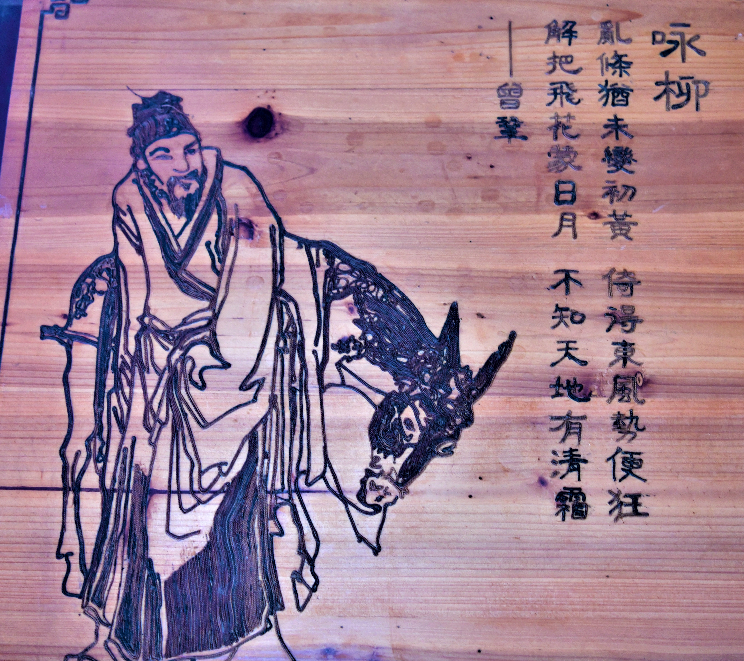 咏柳
亂條猶未變初黃 倚得東風勢便狂
解把飛花蒙日月 不知天地有清霜
—曾鞏